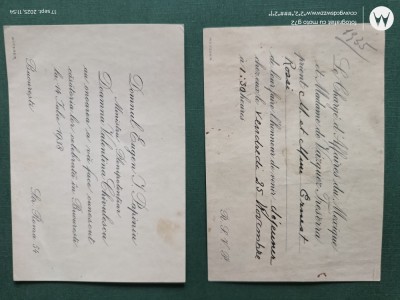 Domnul Eugen I. Papiniu
Ministru Plenipotențiar
Doamna Valentina
au onoarea a vă face cunoscut
căsătoria lor celebrată în București
la 14 Iulie 1938
București
Str. Roma 34
1935
Le Chargé d'Affaires du Mexique
et Madame de Vázquez Treserra
prient M. et Mme Ernest
Rossi
de leur faire l'honneur de venir déjeuner
chez eux le Vendredi 25 Novembre
à 1:30 heures
R.S.V.P.
17 sept. 2025, 11:54
fotografiat cu moto g72